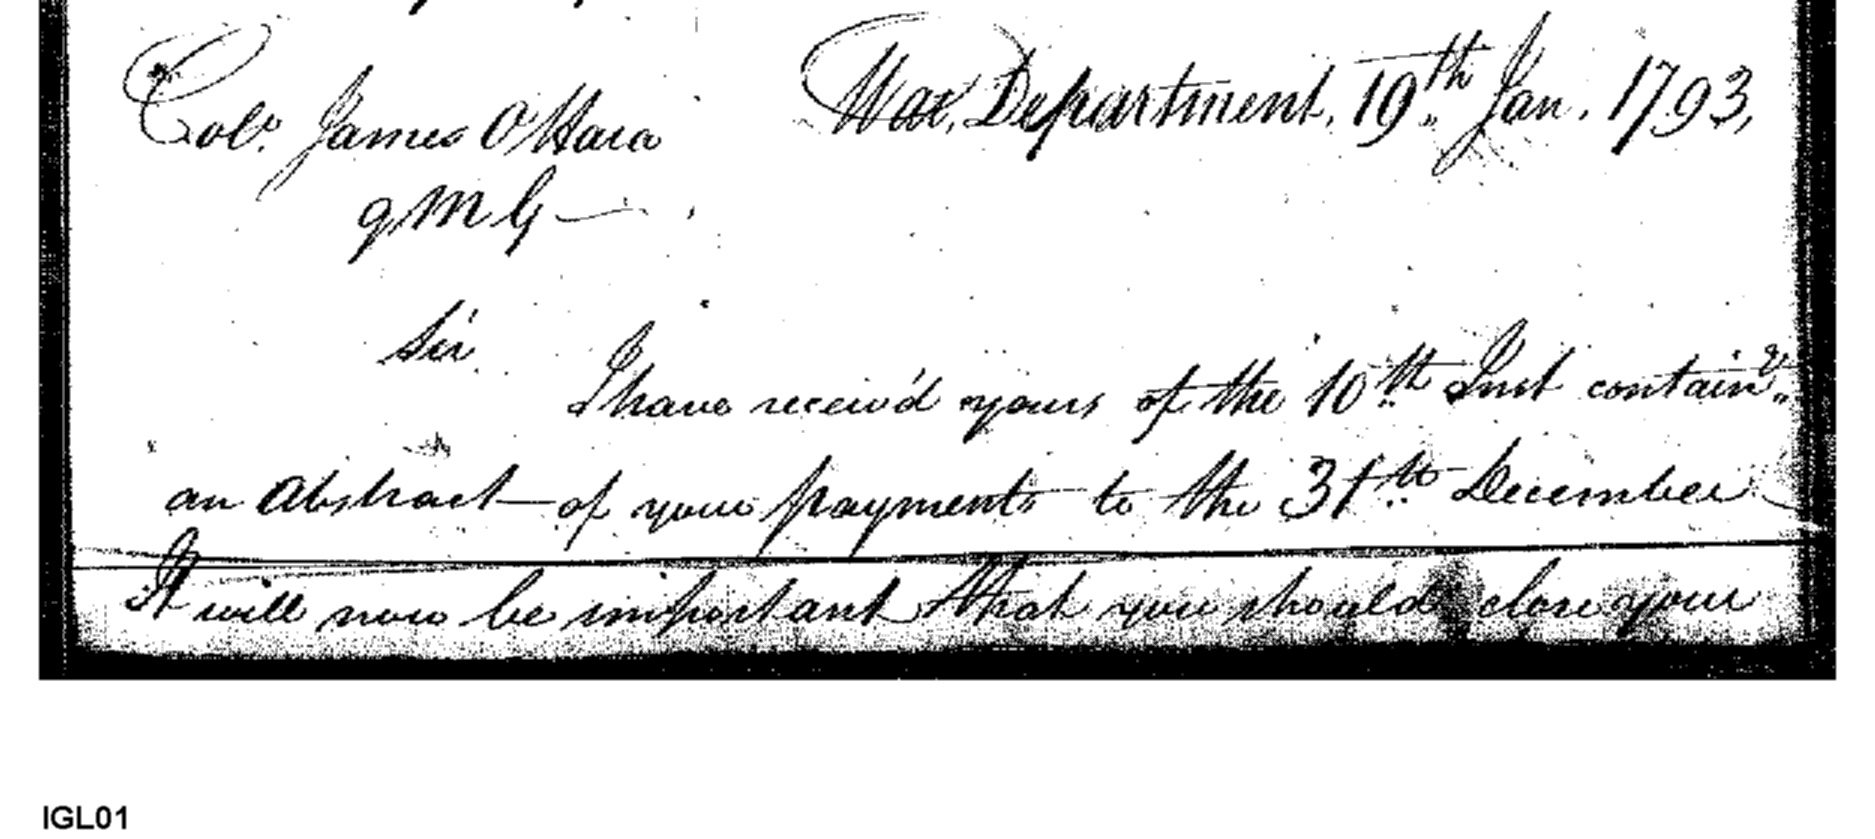 Colo. James O'Hara
War, Department, 19th Jan. 1793,
QMG
Sir
I have receiv'd yours of the 10th Inst containg
an Abstract of your payments to the 31th December
It will now be important that you should close your
IGL01